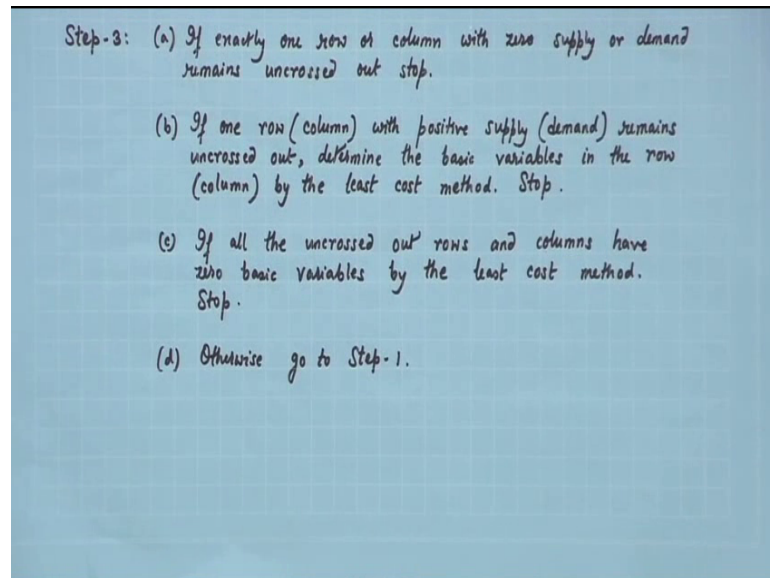 Step-3: (a) If exactly one row or column with zero supply or demand
remains uncrossed out stop.
(b) If one row (column) with positive supply (demand) remains
uncrossed out, determine the basic variables in the row
(column) by the least cost method. Stop.
(c) If all the uncrossed out rows and columns have
zero basic variables by the least cost method.
Stop.
(d) Otherwise go to Step-1.